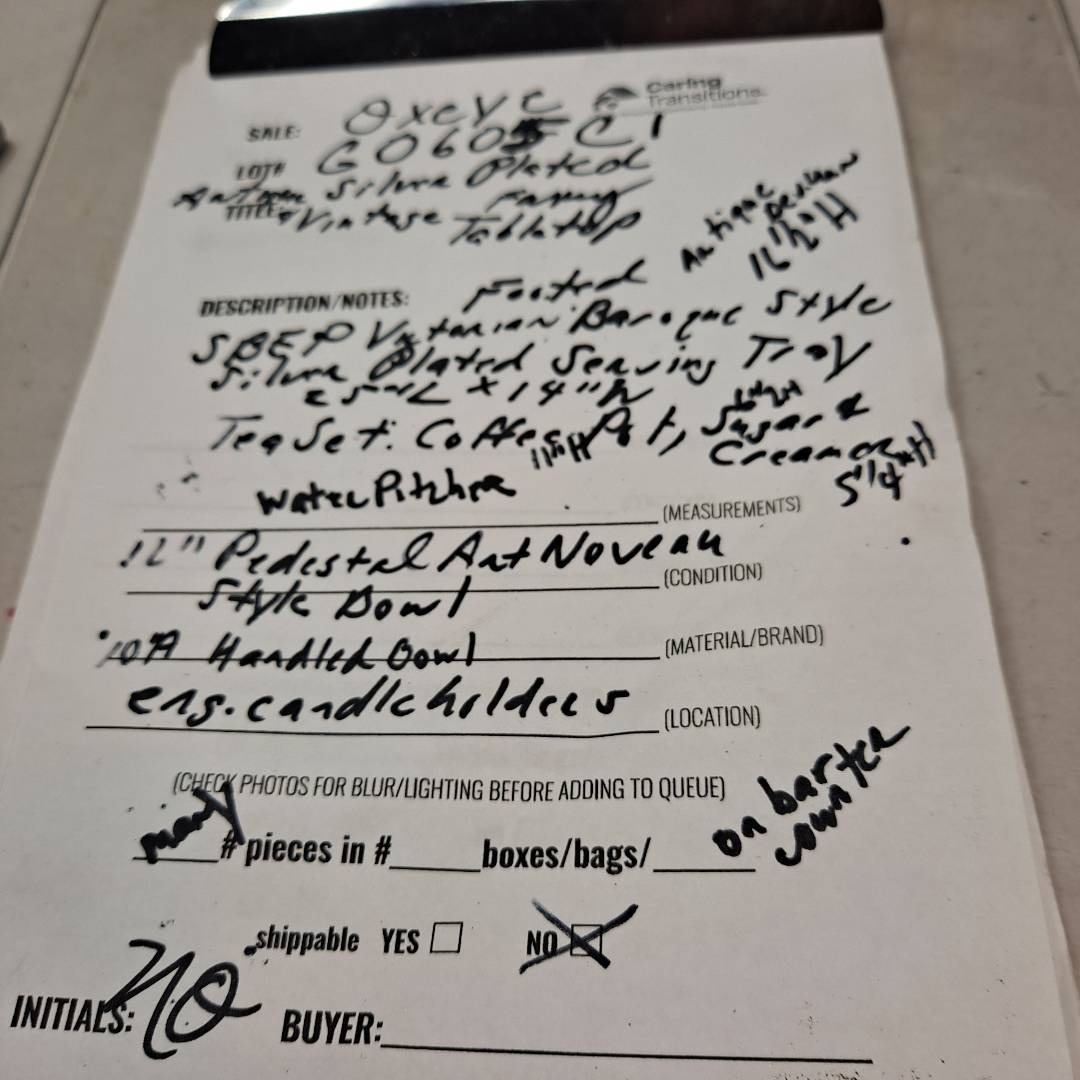 Caring
Transitions
SALE: Oxeye
LOT# G0605 C1
Silver Plated
TITLE: Vintage Fancy
Tabletop
Antique
16 1/2" H
DESCRIPTION/NOTES: Footed
SBEP Victorian Baroque Style
Silver Plated Serving Tray
25" L x 14" W
Tea Set: Coffee Pot, Sugar &
11" H
Creamer
5 1/4" H
Water Pitcher
(MEASUREMENTS)
12" Pedestal Art Noveau
(CONDITION)
Style Bowl
Handled Bowl
(MATERIAL/BRAND)
eng. candleholders
(LOCATION)
(CHECK PHOTOS FOR BLUR/LIGHTING BEFORE ADDING TO QUEUE)
many # pieces in # boxes/bags/ on bar tea
shippable YES NO
INITIALS: BUYER: